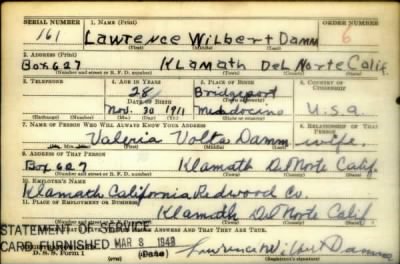 SERIAL NUMBER 1. NAME (Print) ORDER NUMBER
161 Lawrence Wilbert Damm 6
(First) (Middle) (Last)
2. ADDRESS (Print)
Box 627 Klamath Del Norte Calif.
(Number and street or R. F. D. number) (Town) (County) (State)
3. TELEPHONE 4. AGE IN YEARS 5. PLACE OF BIRTH 6. COUNTRY OF CITIZENSHIP
28 Bridgeport
DATE OF BIRTH
Nov. 20 1911 Mendocino U.S.a.
(Exchange) (Number) (Mo.) (Day) (Yr.) (State or country)
7. NAME OF PERSON WHO WILL ALWAYS KNOW YOUR ADDRESS 8. RELATIONSHIP OF THAT PERSON
Valeria Volta Damm wife.
(First) (Middle) (Last)
9. ADDRESS OF THAT PERSON
Box 627 Klamath Del Norte Calif.
(Number and street or R. F. D. number) (Town) (County) (State)
10. EMPLOYER'S NAME
Klamath California Redwood Co.
11. PLACE OF EMPLOYMENT OR BUSINESS
Klamath Del Norte Calif
(Number and street or R. F. D. number) (Town) (County) (State)
ANSWERS AND THAT THEY ARE TRUE.
STATEMENT OF SERVICE
CARD FURNISHED MAR 8
D. S. S. Form 1 (Date) Lawrence Wilbert Damm
(Registrant's signature)